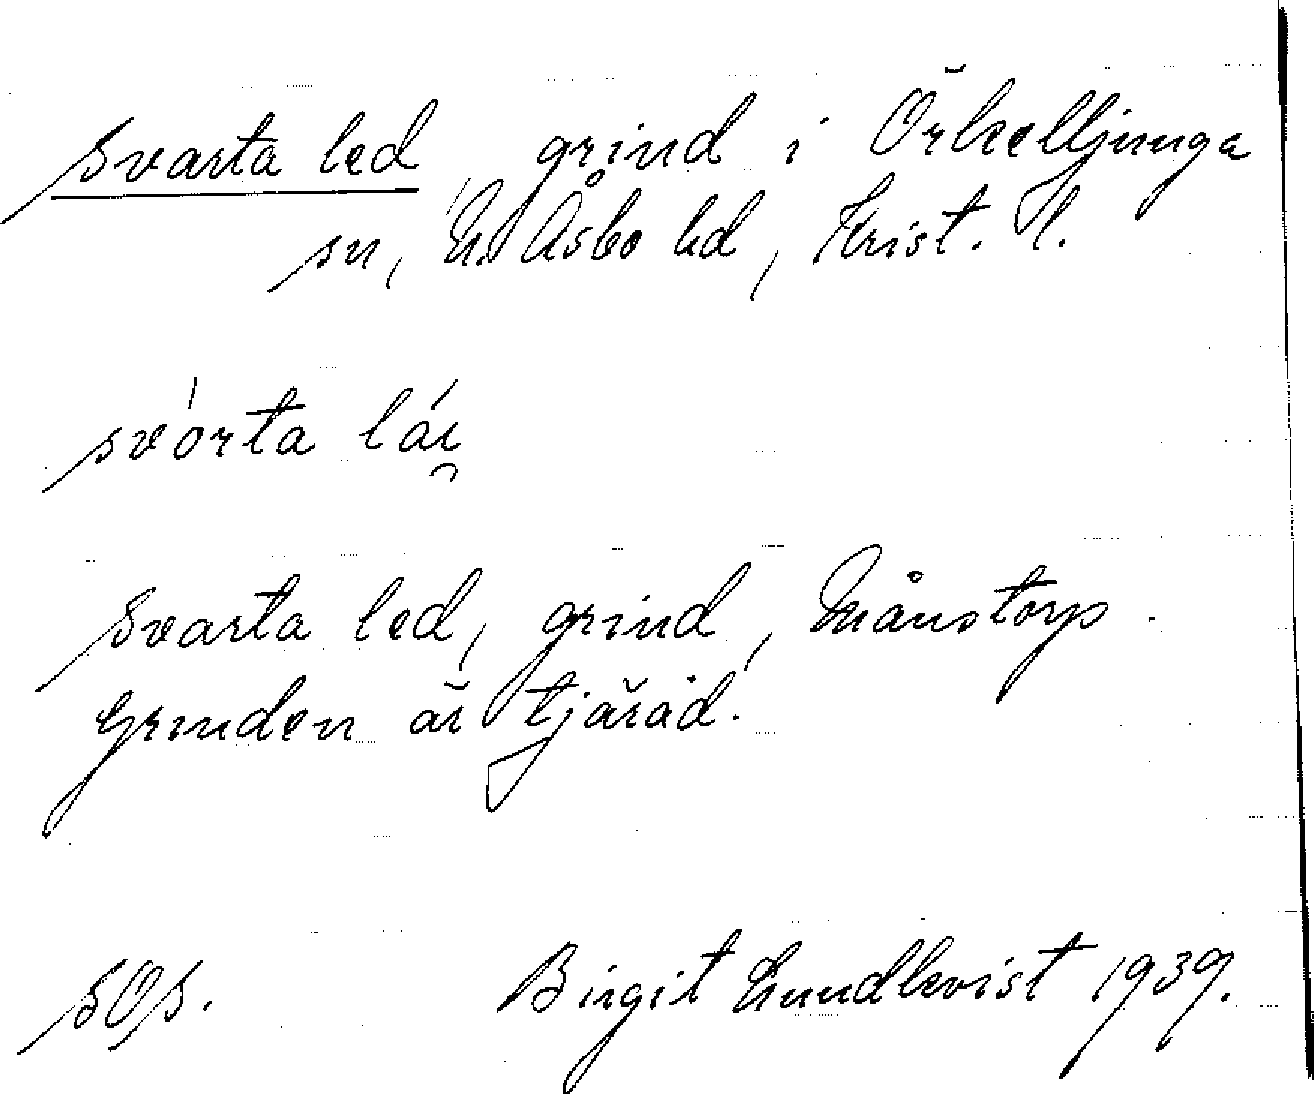 Svarta led, grind i Örkelljunga
sn, N. Åsbo hd, Krist. l.
svǻrta lái̯
Svarta led, grind, Månstorp.
Grinden är tjärad.
SOS. Birgit Lundkvist 1939.